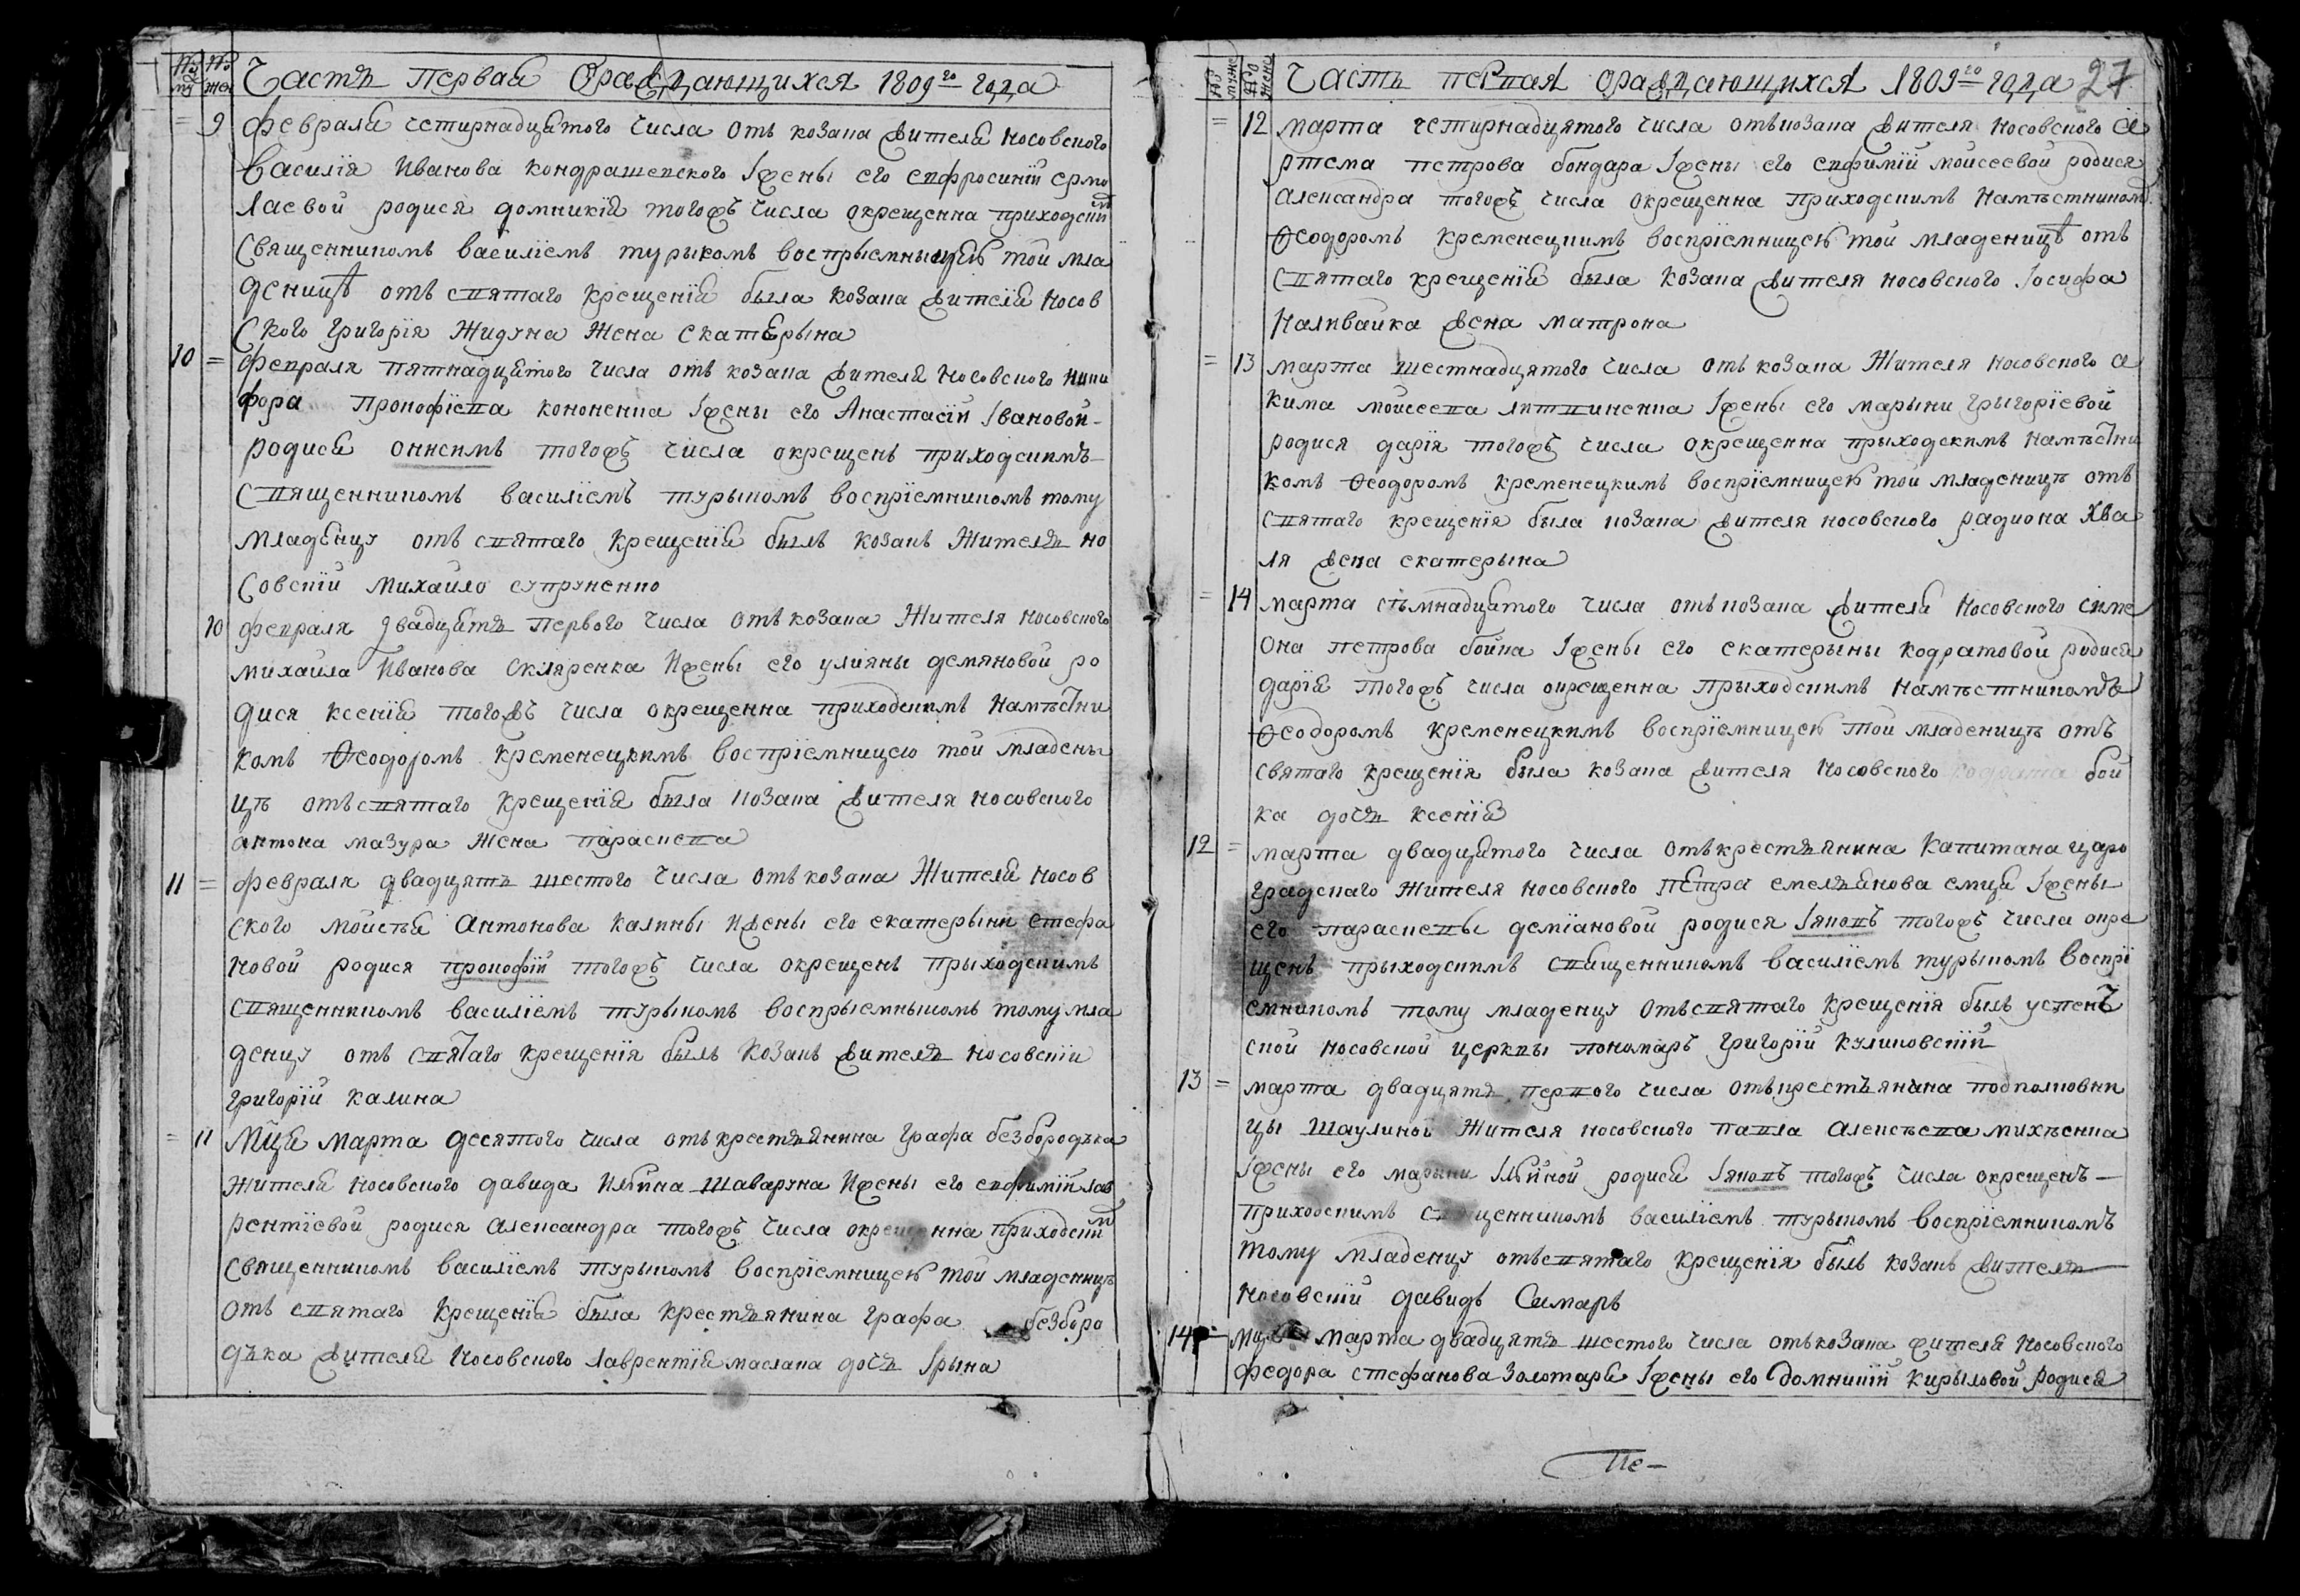 № му № же Часть первая ораждающихся 1809го года
= 9 февраля четирнадцятого числа отъ козака жителя носовского
василїя Иванова кондрашевского Iжены его евфросинїи ермо
лаевой родися домникїя тогожъ числа окрещенна приходским
священникомъ василїемъ турыкомъ воспрыемныцею той мла
деницѣ отъ святаго крещенїя была козака жителя носов
ского григорїя Жидука жена екатерына
10 = февраля пятнадцятого числа отъ козака жителя носовского ники
фора Прокофїева кононенка Iжены его Анастасїи Iвановой-
родися онисимъ тогожъ числа окрещенъ приходскимъ
священникомъ василїемъ турыкомъ воспрїемникомъ тому
младенцу отъ святаго крещенїя былъ козакъ жителъ но
совскїй михайло супруненко
10 февраля двадцять первого числа отъ козака жителя носовского
михайла Иванова скляренка Ижены его улияны демяновой ро
дися ксенїя тогожъ числа окрещенна приходскимъ намѣстни
комъ Ѳеодоромъ кременецкимъ воспрїемницею той младены
цѣ отъ святаго крещенїя была козака жителя носовского
антона мазура жена параскева
11 = февраля двадцять шестого числа отъ козака жителя носов
ского мойсѣя Антонова калины Ижены его екатерыни стефа
новой родися прокофїй тогожъ числа окрещенъ прыходскимъ
священникомъ василїемъ турыкомъ воспрыемныкомъ тому мла
денцу отъ святаго крещенїя былъ козакъ жителъ носовскїй
григорїй калина
= 11 мцѣ марта десятого числа отъ крестъянина графа безбородька
жителя носовского давида Илїина шаварука Ижены его евфимїи лав
рентїевой родися александра тогожъ числа окрещенна приходским
священникомъ василїемъ турыкомъ воспрїемницею той младеницѣ
отъ святаго крещенїя была крестъянина графа безборо
дька жителя носовского лаврентїя маслака дочъ Iрына
№ муже № жене Часть первая ораждающихся 1809го года 27
= 12 марта четирнадцятого числа отъ козака жителя носовского а
ртема петрова бондара Iжены его евфимїи мойсеевой родися
александра тогожъ числа окрещенна приходскимъ намѣстником
Ѳеодоромъ кременецкимъ воспрїемницею той младеницѣ отъ
святаго крещенїя была козака жителя носовского Iосифа
наливайка жена матрона
= 13 марта шестнадцятого числа отъ козака жителя носовского а
кима мойсеева литвиненка Iжены его марыни грыгорїевой
родися дарїя тогожъ числа окрещенна прыходскимъ намѣстни
комъ Ѳеодоромъ кременецкимъ воспрїемницею той младеницѣ отъ
святаго крещенїя была козака жителя носовского радиона хва
ля жена екатерына
= 14 марта сѣмнадцятого числа отъ козака жителя носовского симе
она петрова бойка Iжены его екатерыны кодратовой родися
дарїя тогожъ числа окрещенна прыходскимъ намѣстникомъ
Ѳеодоромъ кременецкимъ воспрїемницею той младеницѣ отъ
святаго крещенїя была козака жителя носовского кодрата бой
ка дочъ ксенїя
12 = марта двадцятого числа отъ крестъянина капитана царо
градскаго жителя носовского петра емельянова емця Iжены
его параскевы демїановой родися Iяковъ тогожъ числа окре
щенъ прыходскимъ священникомъ василїемъ турыкомъ воспрї
емникомъ тому младенцу отъ святаго крещенїя былъ успен
ской носовской церквы пономаръ григорїй куликовскїй
13 = марта двадцять первого числа отъ крестъянина подполковни
цы шаулиной жителя носовского павла алексѣева михѣенка
Iжены его марыни Iлїиной родися Iяковъ тогожъ числа окрещенъ —
приходскимъ священникомъ василїемъ турыкомъ воспрїемникомъ
тому младенцу отъ святаго крещенїя былъ козакъ жителъ
носовскїй давидъ Симаръ
14 = мцѣ марта двадцять шестого числа отъ козака жителя носовского
федора стефанова золотаря Iжены его домникїи кирыловой родися
Пе-